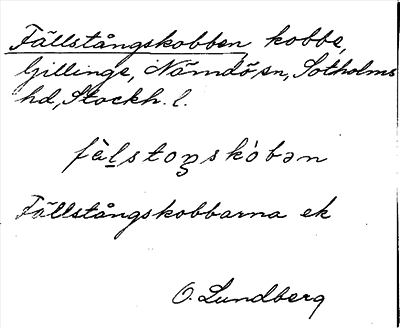 Fällstångskobben, kobbe,
Gillinge, Nämdö sn, Sotholms
hd, Stockh. l.
fälstoŋskòbən
Fällstångskobbarna ek
O. Lundberg